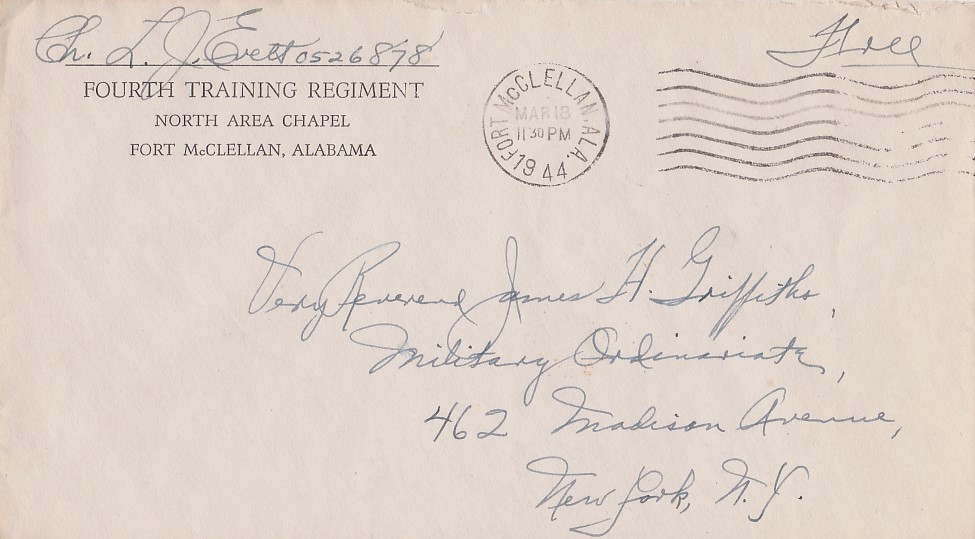 Ch. L. J. Evett 0526878
Free
FOURTH TRAINING REGIMENT
NORTH AREA CHAPEL
FORT McCLELLAN, ALABAMA
FORT McCLELLAN, ALA.
MAR 18
11 30 PM
1944
Very Reverend James H. Griffiths,
Military Ordinariate,
462 Madison Avenue,
New York, N.Y.